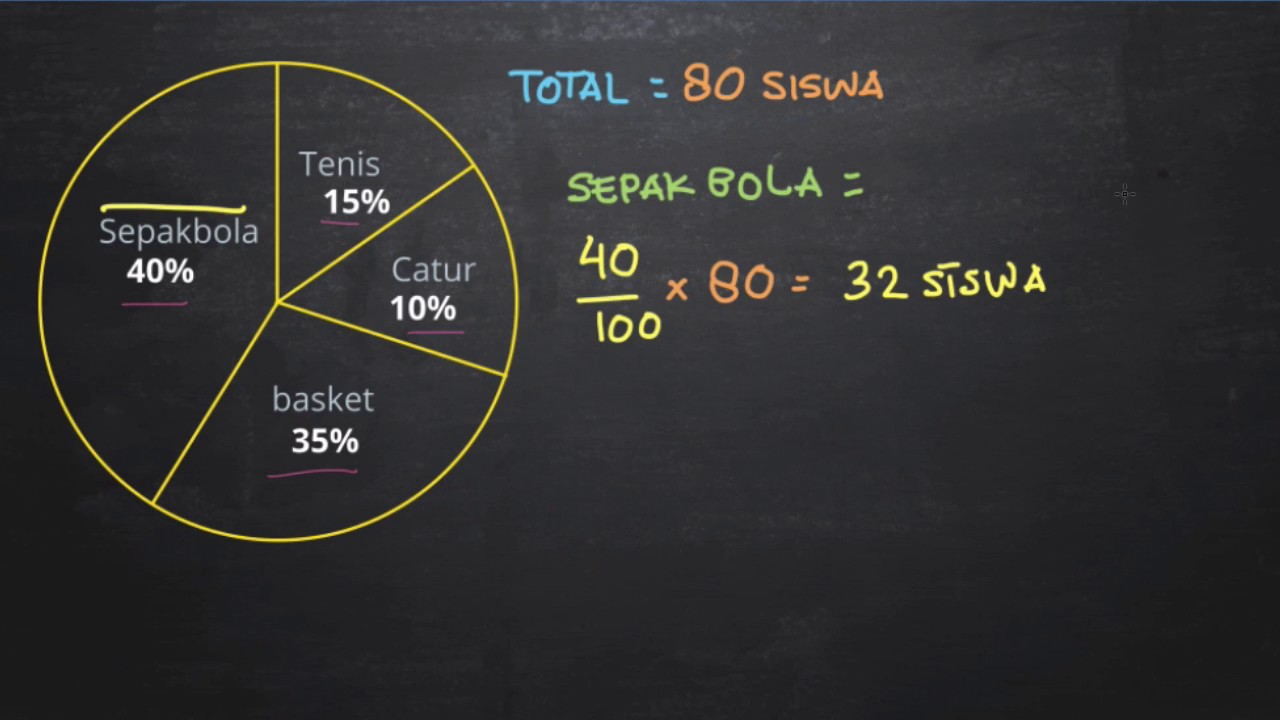 TOTAL = 80 SISWA
Tenis
15%
Catur
10%
Sepakbola
40%
basket
35%
SEPAK BOLA =
40
100
× 80 = 32 SISWA